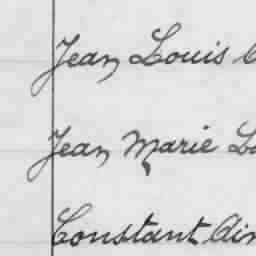 Jean Louis
Jean Marie
Constant